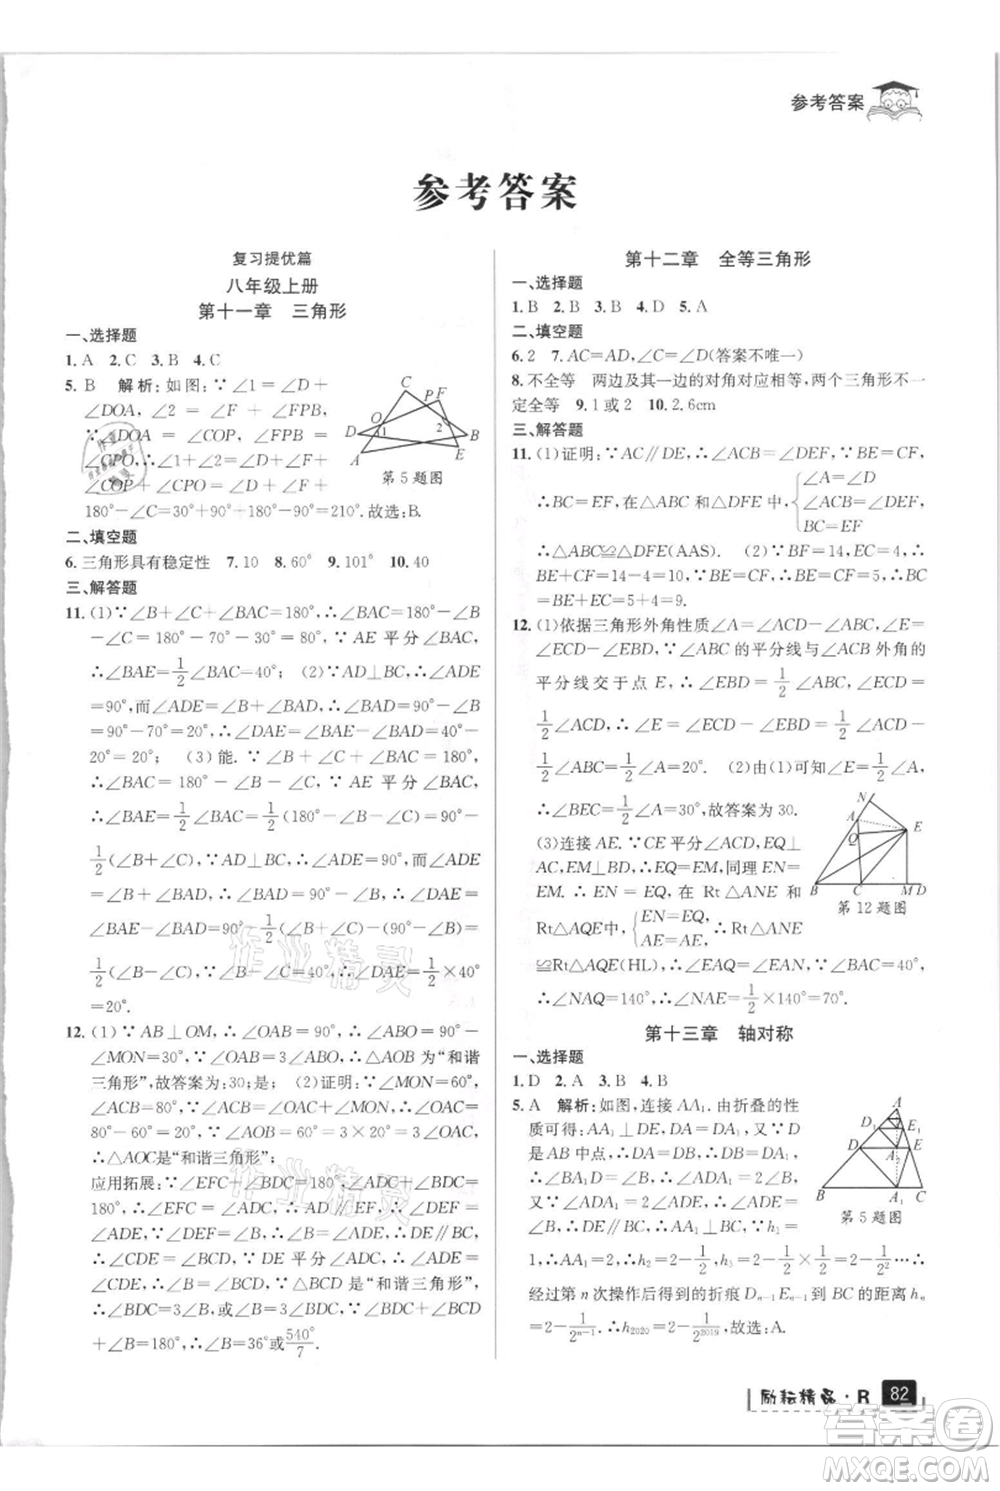 参考答案
参考答案
复习提优篇
八年级上册
第十一章 三角形
一、选择题
1. A 2. C 3. B 4. C
5. B 解析:如图:∵∠1=∠D+
∠DOA,∠2 = ∠F + ∠FPB,
∵∠DOA = ∠COP,∠FPB =
∠CPO,∴∠1+∠2=∠D+∠F+
∠COP + ∠CPO = ∠D + ∠F +
180°-∠C=30°+180°=210°.故选:B.
第5题图
二、填空题
6. 三角形具有稳定性 7. 10 8. 60° 9. 101° 10. 40
三、解答题
11. (1)∵∠B+∠C+∠BAC=180°,∴∠BAC=180°-∠B
-∠C=180°-70°-30°=80°;∵ AE 平分∠BAC,
∴∠BAE=1/2∠BAC=40°; (2)∵AD⊥BC,∴∠ADE
=90°,而∠ADE=∠B+∠BAD,∴∠BAD=90°-∠B
=90°-70°=20°,∴∠DAE=∠BAE-∠BAD=40°-
20°=20°; (3)能. ∵∠B+∠C+∠BAC=180°,
∴∠BAC=180°-∠B-∠C,∵ AE 平分∠BAC,
∴∠BAE=1/2∠BAC=1/2(180°-∠B-∠C)=90°-
1/2(∠B+∠C),∵AD⊥BC,∴∠ADE=∠B+∠BAD
=90°,∴∠BAD=90°-∠B,∴∠DAE=∠BAE-
∠BAD=90°-1/2(∠B+∠C)-(90°-∠B)=
1/2(∠B-∠C),∵∠B-∠C=40°,∴∠DAE=1/2×40°
=20°.
12. (1)∵ AB⊥OM,∴∠OAB=90°,∴∠ABO=90°-
∠MON=30°,∵∠OAB=3∠ABO,∴△AOB为“和谐
三角形”,故答案为:30;是; (2)证明:∵∠MON=60°,
∠ACB=80°,∵∠ACB=∠OAC+∠MON,∴∠OAC=
80°-60°=20°,∵∠AOB=60°=3×20°=3∠OAC,
∴△AOC是“和谐三角形”;
应用拓展:∵∠EFC+∠BDC=180°,∠ADC+∠BDC=
180°,∴∠EFC=∠ADC,∴AD∥EF,∴∠DEF=
∠ADE,∵∠DEF=∠B,∴∠B=∠ADE,∴DE∥BC,
∴∠CDE=∠BCD,∵ DE 平分∠ADC,∴∠ADE=
∠CDE,∴∠B=∠BCD,∵△BCD是“和谐三角形”,
∴∠BDC=3∠B,或∠B=3∠BDC,∵∠BDC+∠BCD
+∠B=180°,∴∠B=36°或∠B=540°/7.
第十二章 全等三角形
一、选择题
1. B 2. B 3. B 4. D 5. A
二、填空题
6. 2 7. AC=AD,∠C=∠D(答案不唯一)
8. 不全等 两边及其一边的对角对应相等,两个三角形不一
定全等 9. 1或2 10. 2.6cm
三、解答题
11. (1)证明:∵AC∥DE,∴∠ACB=∠DEF,∵BF=EC,
∴BC=EF,在△ABC和△DFE中{∠A=∠D
∠ACB=∠DEF,
BC=EF
∴△ABC≌△DFE(AAS). (2)∵BF=14,EC=4,
∴BE+CF=14-4=10,∵BF=CE,∴BE=CF=5,
∴BC=BE+EC=5+4=9.
12. (1)依据三角形外角性质∠A=∠ACD-∠ABC,∠E=
∠ECD-∠EBD,∵∠ABC的平分线与∠ACB外角的
平分线交于点E,∴∠EBD=1/2∠ABC,∠ECD=
1/2∠ACD,∴∠E=∠ECD-∠EBD=1/2∠ACD-
1/2∠ABC=1/2∠A=20°. (2)由(1)可知∠A=2∠E,
∴∠BEC=1/2∠A=30°,故答案为30.
(3)连接AE.∵CE平分∠ACD,EN⊥
AC,EM⊥BD,∴EQ=EM,同理EN=
EM.∴EN=EQ,在 Rt△ANE 和
Rt△AQE中{EN=EQ
AE=AE,∴Rt△ANE
≌Rt△AQE(HL),∴∠NAE=∠QAE,∵∠BAC=40°,
∴∠NAQ=140°,∴∠EAC=1/2∠NAQ=1/2×140°=70°.
第12题图
第十三章 轴对称
一、选择题
1. D 2. A 3. B 4. B
5. A 解析:如图,连接AA₁,由折叠的性
质可得:AA₁⊥DE,DA=DA₁,又∵D
是AB中点,∴DA=DB,∴DB=DA₁,
∴∠BA₁D=∠B,∴∠ADA₁=2∠B,又
∵∠ADA₁=2∠ADE,∴∠ADE=∠B,
∴DE∥BC,∴AA₁⊥BC,∵h₁=
1,∴AA₁=2,∴h₂=2-1/2,同理h₃=2-1/2×1/2=2-1/2²…∴
经过第n次操作后得到的折痕Dₙ₋₁Eₙ₋₁到BC的距离hₙ
=2-1/2ⁿ⁻¹,∴h₂₀₂₀=2-1/2²⁰¹⁹,故选:A.
第5题图
励耘精品·R 82
答案圈
MXQE.COM
作业精灵
作业精灵